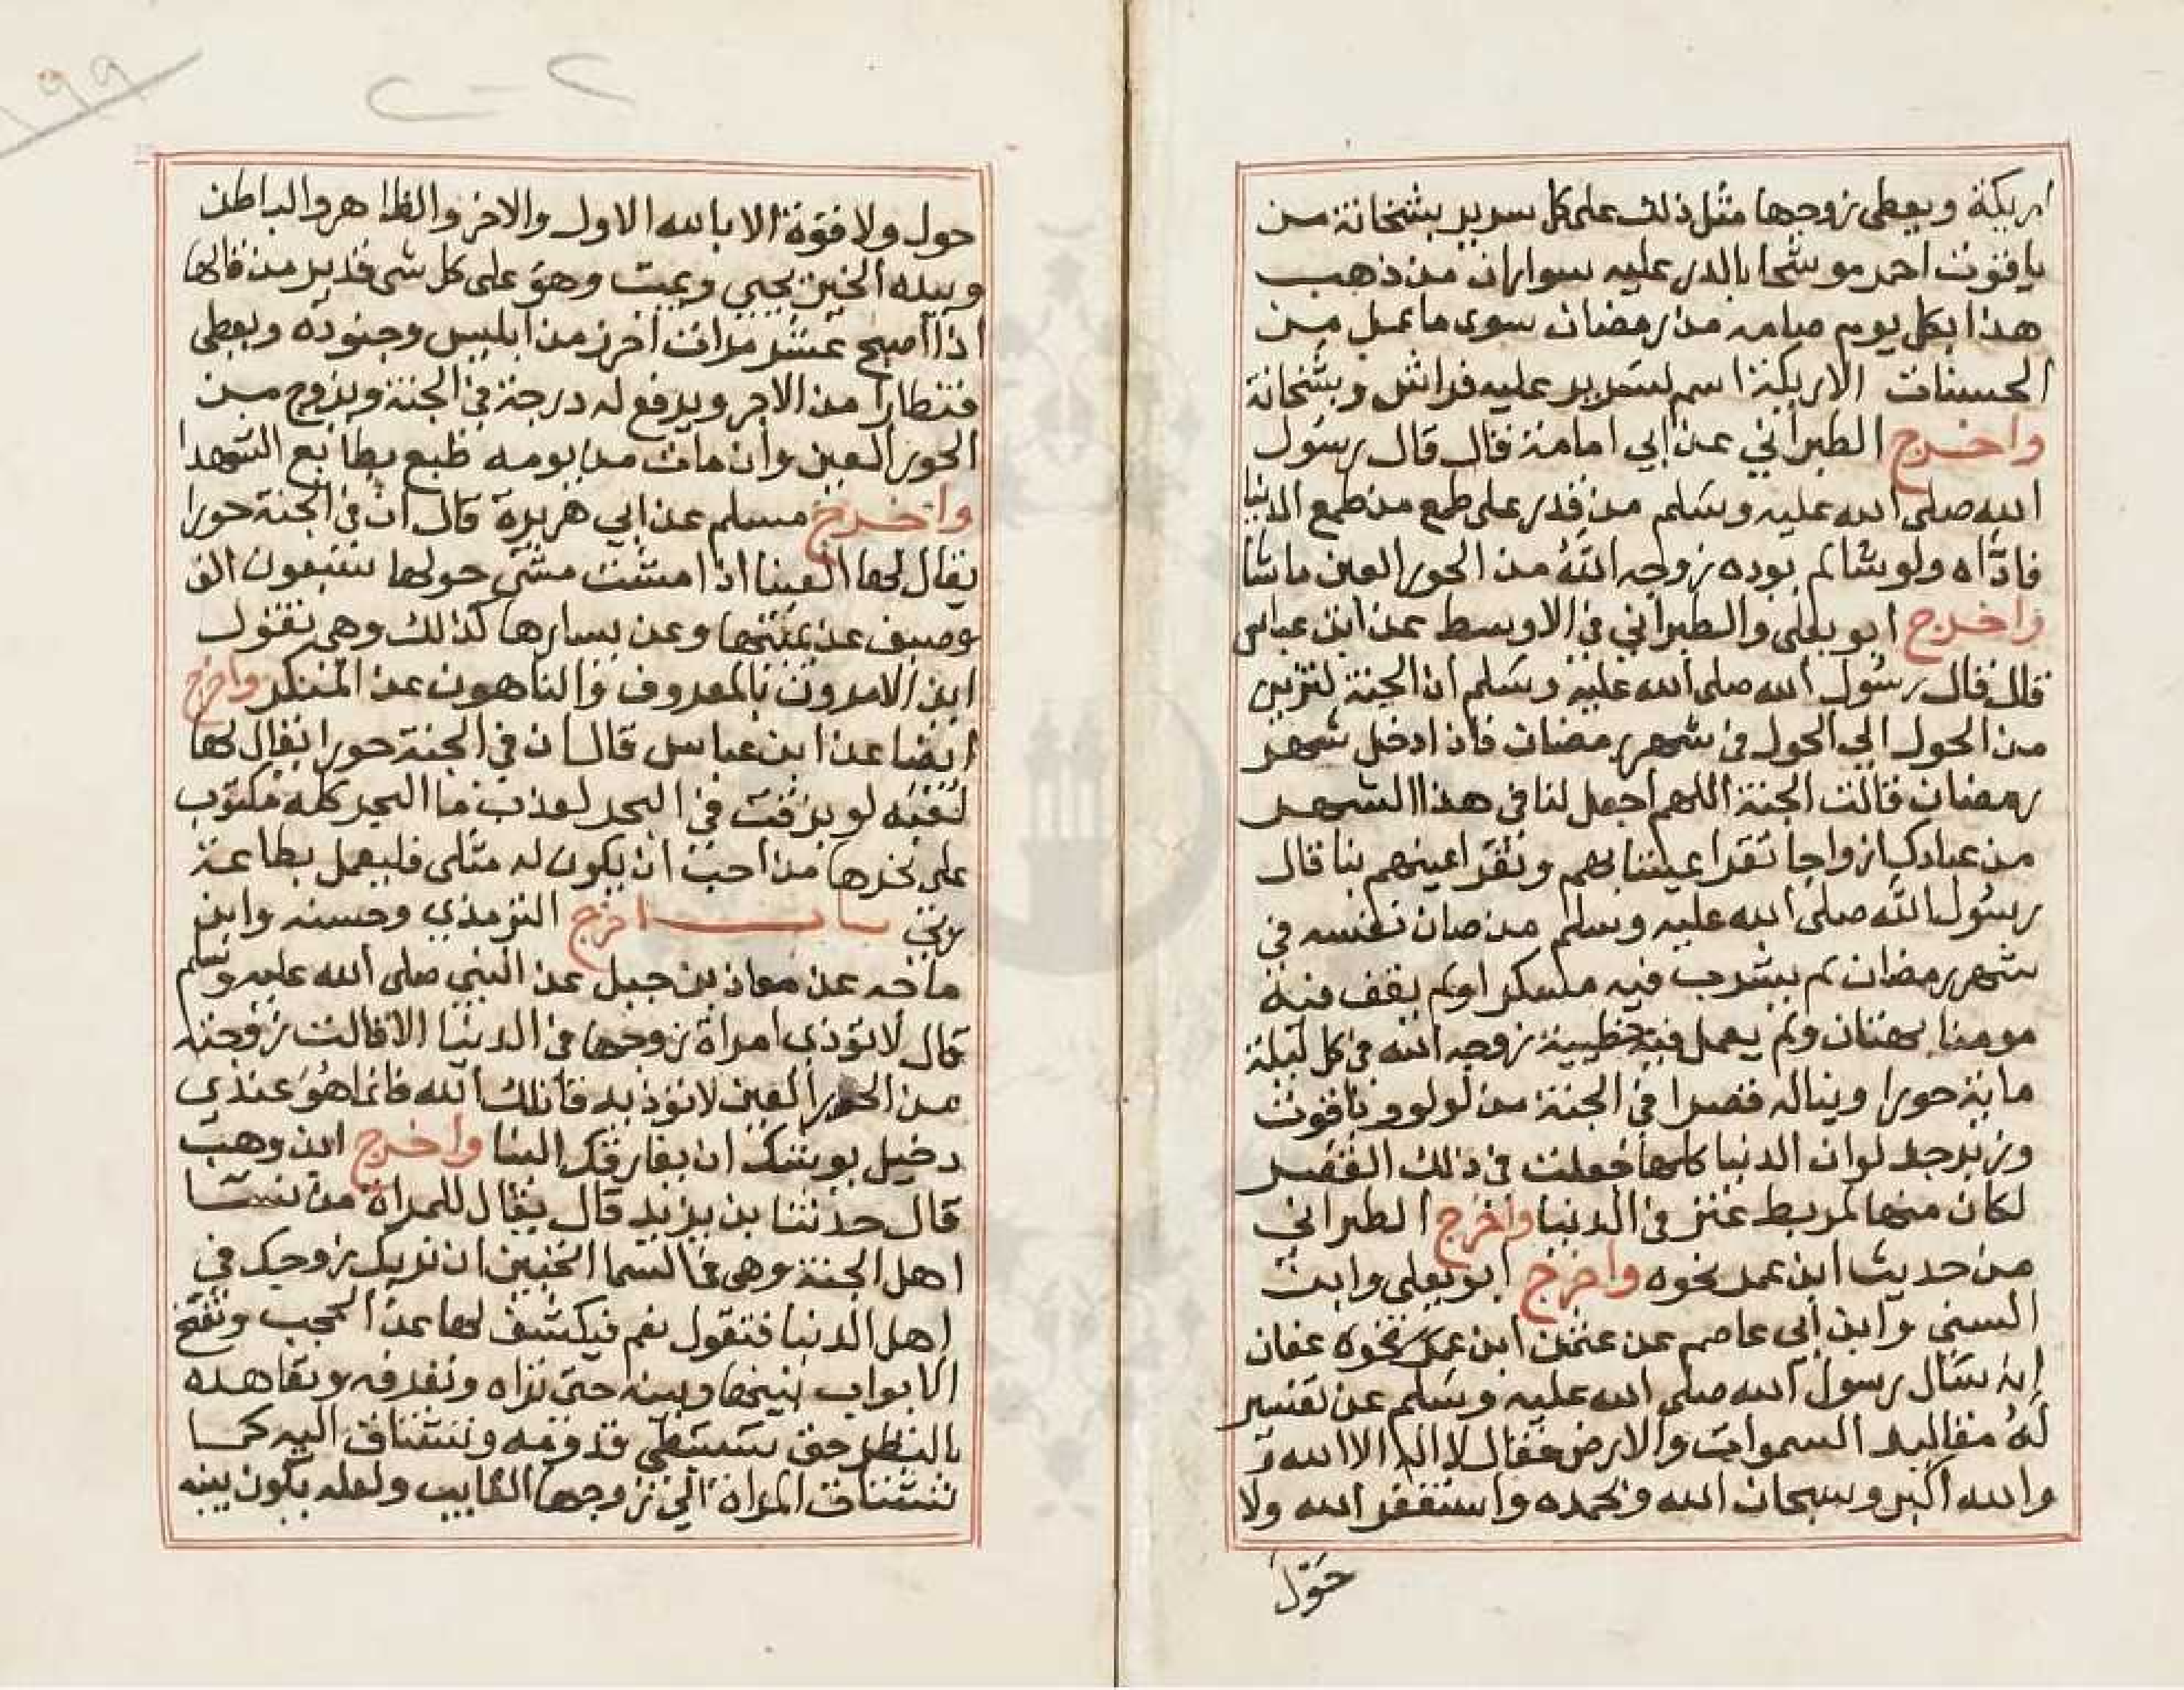 اريكة ويعطى زوجها مثل ذلك على كل سرير بشخانة من
ياقوت احمر موشحا بالدر عليه سواران من ذهب
هذا بكل يوم صامه من رمضان سوى ما عمل من
الحسنات الاريكة اسم لسرير عليه فراش وبشخانة
واخرج الطبراني عن ابي امامة قال قال رسول
الله صلى الله عليه وسلم من قدر على طمع من طمع الدنيا
فادّاه ولو شا لم يوده زوجه الله من الحور العين ما شا
واخرج ابو يعلى والطبراني في الاوسط عن ابن عباس
قال قال رسول الله صلى الله عليه وسلم ان الجنة لتزين
من الحول الي الحول في شهر رمضان فاذا دخل شهر
رمضان قالت الجنة اللهم اجعل لنا في هذا الشهر
من عبادك ازواجا تقر اعيننا بهم وتقر اعينهم بنا قال
رسول الله صلى الله عليه وسلم من صان نفسه في
شهر رمضان لم يشرب فيه مسكرا ولم يقف فيه
مومنا بهتان ولم يعمل فيه خطيية زوجه الله في كل ليلة
ماية حورا وبنا له قصرا في الجنة من لولو وياقوت
وزبرجد لو ان الدنيا كلها جعلت في ذلك القصر
لكان منها كمربط عنز في الدنيا واخرج الطبراني
من حديث ابن عمر نحوه واخرج ابو يعلى وابن
السني وابن ابي عاصم عن عثمن ابن عمر نحوه عفان
انه سال رسول الله صلى الله عليه وسلم عن تفسير
له مقاليد السموات والارض فقال لا اله الا الله و
والله اكبر وسبحان الله وبحمده واستغفر الله ولا
حول
١٩٩
حول ولا قوة الا بالله الاول والاخر والظاهر والباطن
وبيده الخير يحيي ويميت وهو على كل شي قدير من قالها
اذا اصبح عشر مرات احرز من ابليس وجنوده ويعطى
قنطارا من الاجر ويرفع له درجة في الجنة ويزوج من
الحور العين وان مات من يومه طبع بطابع الشهدا
واخرج مسلم عن ابي هريرة قال ان في الجنة حورا
يقال لها العينا اذا مشت مشى حولها سبعون الف
وصيف عن يمينها وعن يسارها كذلك وهي تقول
اين الامرون بالمعروف والناهون عن المنكر واخرج
ايضا عن ابن عباس قال ان في الجنة حورا يقال لها
لعبه لو بزقت في البحر لعذب ما البحر كله مكتوب
على نحرها من احب ان يكون له مثلي فليعمل بطاعة
ربي باب اخرج الترمذي وحسنه وابن
ماجه عن معاذ بن جبل عن النبي صلى الله عليه وسلم
قال لا توذي امراة زوجها في الدنيا الا قالت زوجته
من الحور العين لا توذيه قاتلك الله فانما هو عندي
دخيل يوشك ان يفارقك الينا واخرج ابن وهب
قال حدثنا بن يزيد قال يقال للمراة من نسا
اهل الجنة وهي في السما اتحبين ان نريك زوجك في
اهل الدنيا فتقول نعم فيكشف لها عن الحجب وتفتح
الابواب بينها وبينه حتى تراه وتعرفه وتعاهده
بالنظر حتى تستبطي قدومه وتشتاق اليه كما
تشتاق المراة الي زوجها الغايب ولعله يكون بينه